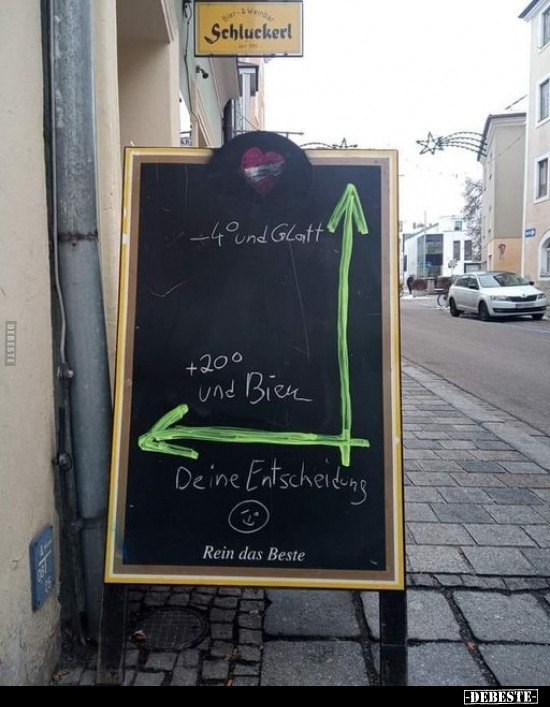 Bier- & Weinbar
Schluckerl
-4° und Glatt
+20°
und Bier
Deine Entscheidung
Rein das Beste
DEBESTE
-DEBESTE-